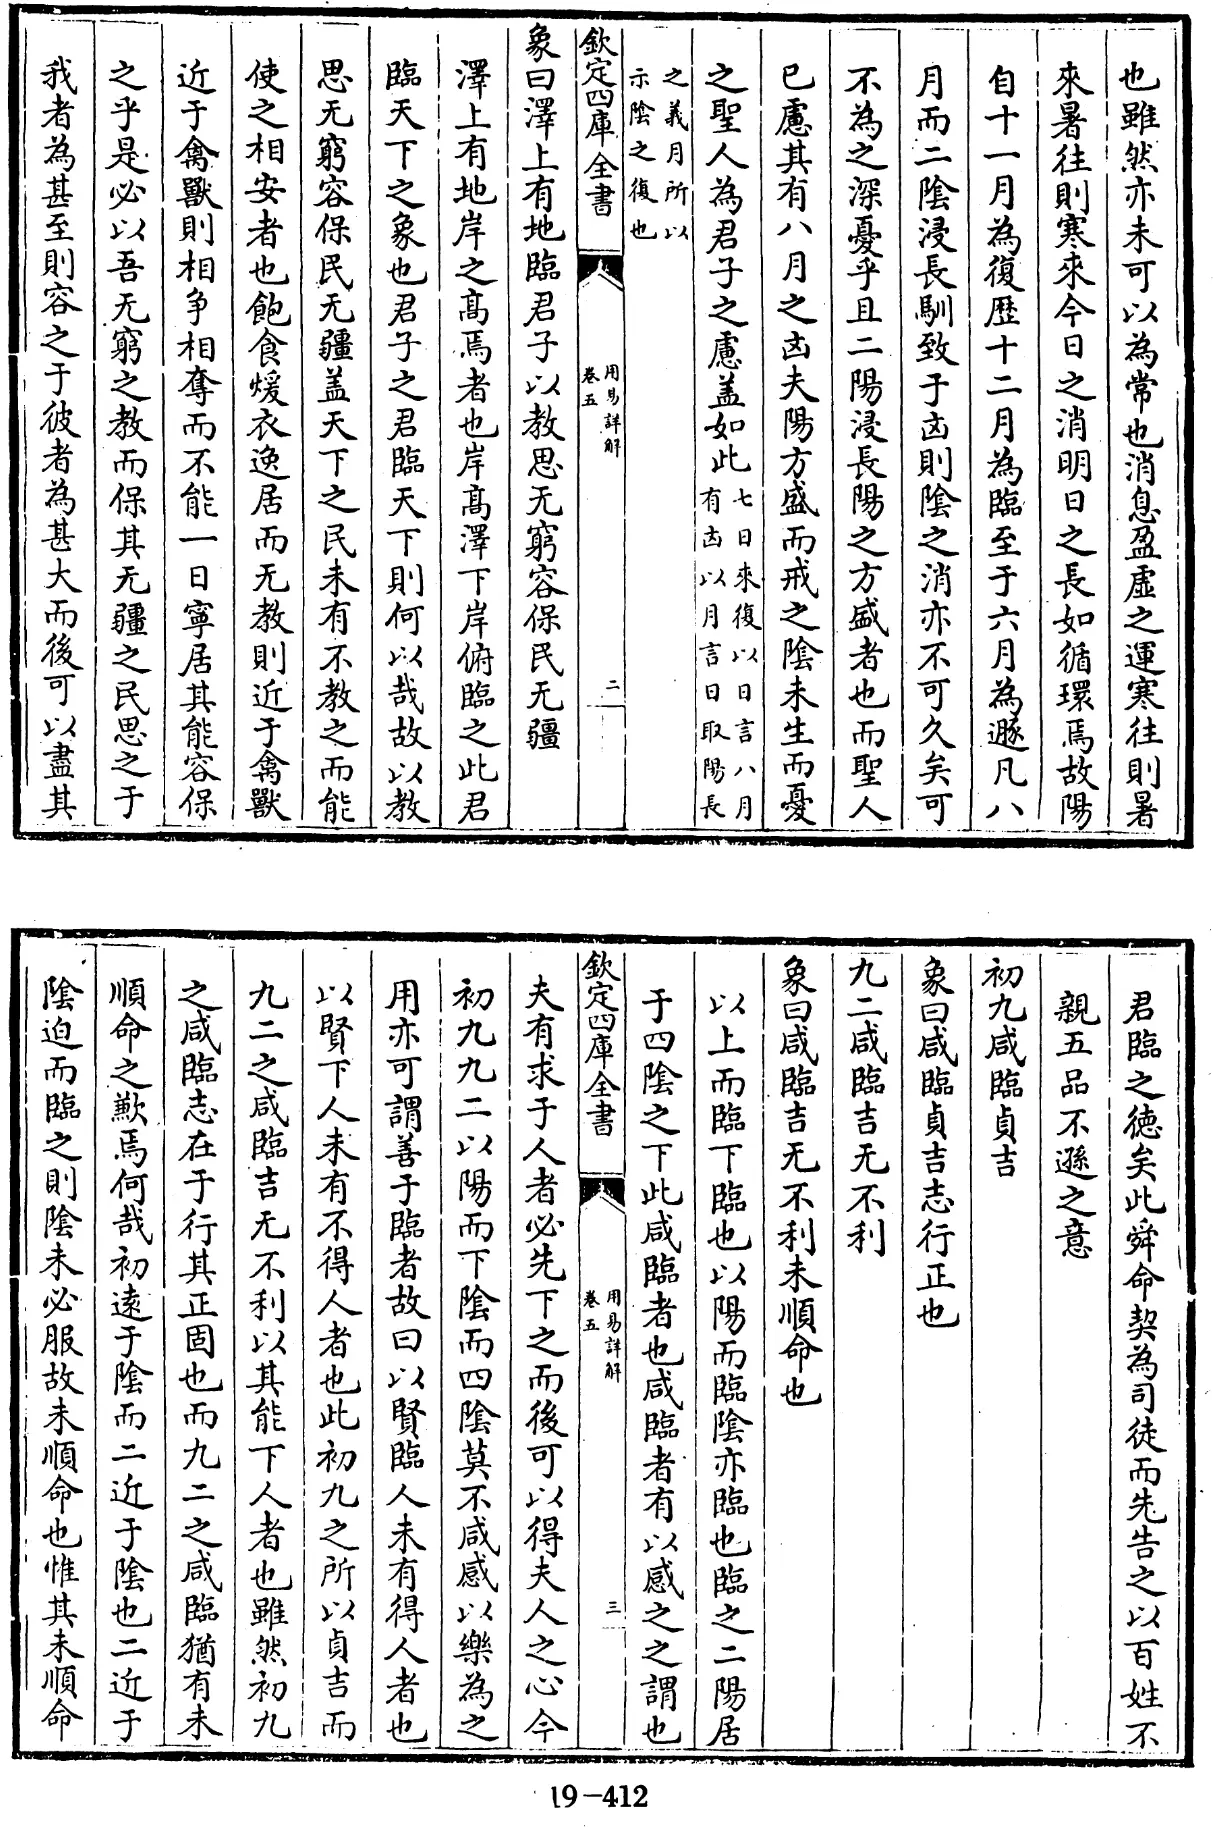 也雖然亦未可以為常也消息盈虛之運寒往則暑
來暑往則寒來今日之消明日之長如循環焉故陽
自十一月為復歷十二月為臨至于六月為遯凡八
月而二陰浸長馴致于凶則陰之消亦不可久矣可
不為之深憂乎且二陽浸長陽之方盛者也而聖人
已慮其有八月之凶夫陽方盛而戒之陰未生而憂
之聖人為君子之慮蓋如此七日來復以日言八月
有凶以月言日取陽長
之義月所以
示陰之復也
欽定四庫全書
用易詳解
卷五
二
象曰澤上有地臨君子以教思无窮容保民无疆
澤上有地岸之髙焉者也岸髙澤下岸俯臨之此君
臨天下之象也君子之君臨天下則何以哉故以教
思无窮容保民无疆蓋天下之民未有不教之而能
使之相安者也飽食煖衣逸居而无教則近于禽獸
近于禽獸則相爭相奪而不能一日寧居其能容保
之乎是必以吾无窮之教而保其无疆之民思之于
我者為甚至則容之于彼者為甚大而後可以盡其
君臨之徳矣此舜命契為司徒而先告之以百姓不
親五品不遜之意
初九咸臨貞吉
象曰咸臨貞吉志行正也
九二咸臨吉无不利
象曰咸臨吉无不利未順命也
以上而臨下臨也以陽而臨陰亦臨也臨之二陽居
于四陰之下此咸臨者也咸臨者有以感之之謂也
欽定四庫全書
用易詳解
卷五
三
夫有求于人者必先下之而後可以得夫人之心今
初九九二以陽而下陰而四陰莫不咸感以樂為之
用亦可謂善于臨者故曰以賢臨人未有得人者也
以賢下人未有不得人者也此初九之所以貞吉而
九二之咸臨吉无不利以其能下人者也雖然初九
之咸臨志在于行其正固也而九二之咸臨猶有未
順命之歉焉何哉初遠于陰而二近于陰也二近于
陰迫而臨之則陰未必服故未順命也惟其未順命
19-412